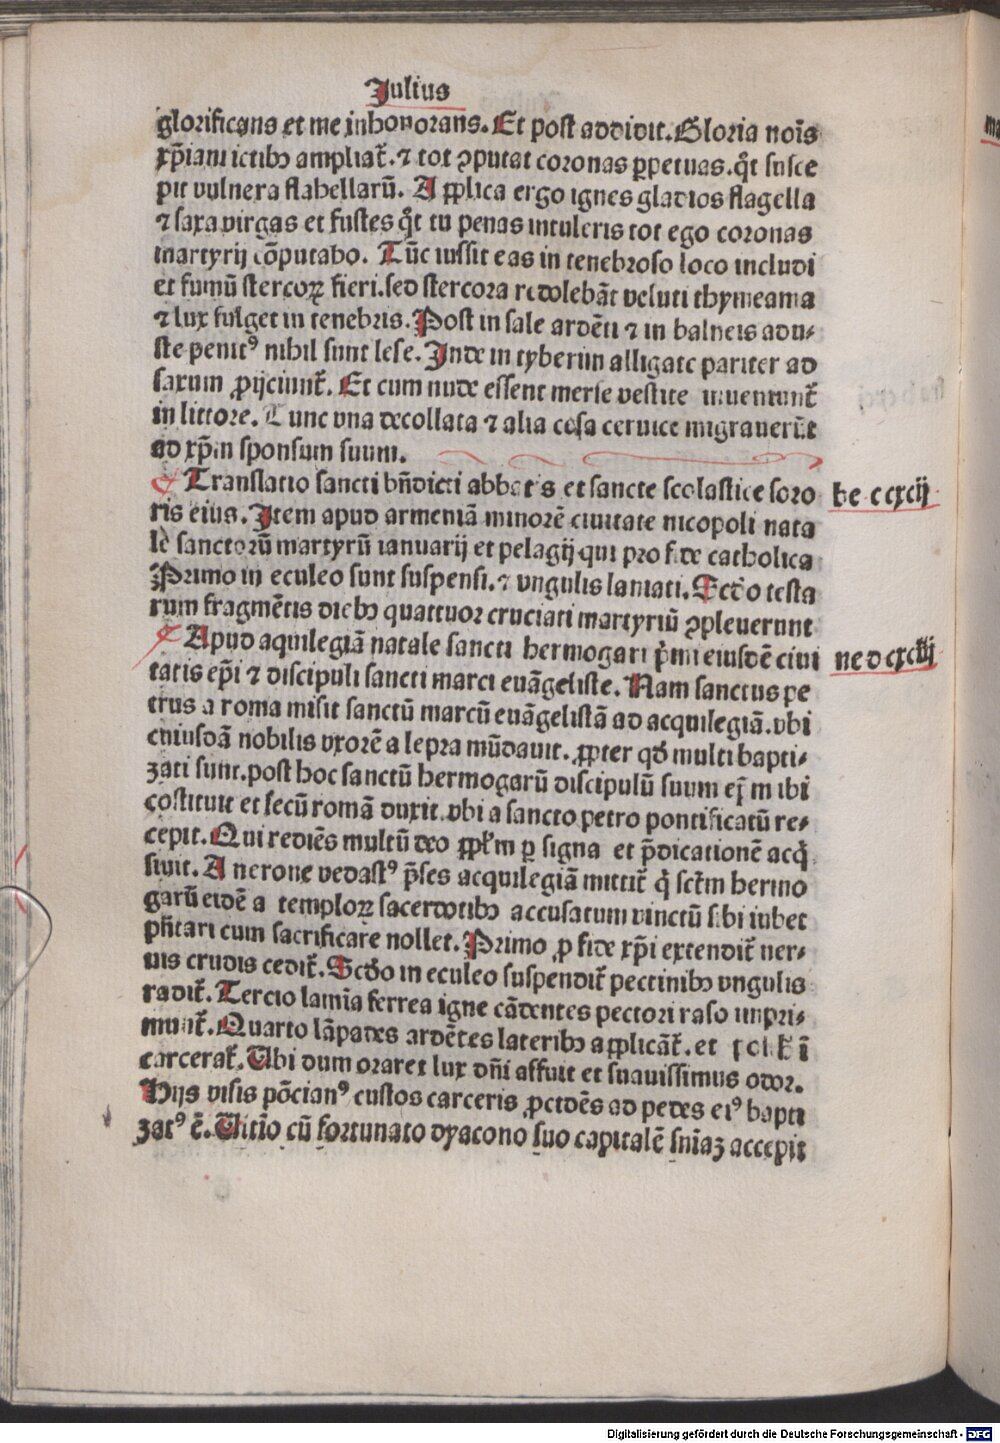 Julius
glorificans et me inhonorans. Et post addidit. Gloria noīs
xp̄iani ictibꝫ ampliat̄. ⁊ tot ꝯputat coronas ꝑpetuas. qͦt susce
pit vulnera flabellarū. Applica ergo ignes gladios flagella
⁊ saxa virgas et fustes qͦt tu penas intuleris tot ego coronas
martyrij cōputabo. Tūc iussit eas in tenebroso loco includi
et fumū stercoꝝ fieri. sed stercora redolebāt veluti thymeama
⁊ lux fulget in tenebris. Post in sale ardēti ⁊ in balneis adu⸗
ste penitꝰ nihil sunt lese. Inde in tyberim alligate pariter ad
saxum ꝓijciunt̄. Et cum nude essent merse vestite inueniunt̄
in littore. Tunc vna decollata ⁊ alia cesa ceruice migrauerūt
ad xp̄m sponsum suum.
Translatio sancti bn̄dicti abbatis et sancte scolastice soro
ris eius. Item apud armeniā minorē ciuitate nicopoli nata
le sanctorū martyrū ianuarij et pelagij qui pro fide catholica
Primo in eculeo sunt suspensi. ⁊ vngulis laniati. Scd̄o testa
rum fragmētis diebꝫ quattuor cruciati martyriū ꝯpleuerunt
be c cxcij
Apud aquilegiā natale sancti hermogari p̄mi eiusdē ciui
tatis ep̄i ⁊ discipuli sancti marci euāgeliste. Nam sanctus pe
trus a roma misit sanctū marcū euāgelistā ad acquilegiā. vbi
cuiusdā nobilis vxorē a lepra mūdauit. ꝓpter qd̄ multi bapti⸗
zati sunt. post hoc sanctū hermogarū discipulū suum ep̄m ibi
cōstituit et secū romā duxit. vbi a sancto petro pontificatū re⸗
cepit. Qui rediēs multū deo ꝓpl̄m ꝑ signa et p̄dicationē acq̄
siuit. A nerone vedastꝰ p̄ses acquilegiā mittit̄ q̇ sct̄m hermo
garū eidē a temploꝝ sacerdotibꝫ accusatum vinctū sibi iubet
pn̄tari cum sacrificare nollet. Primo ꝓ fide xp̄i extendit̄ ner⸗
uis crudis cedit̄. Scd̄o in eculeo suspendit̄ pectinibꝫ vngulis
radit̄. Tercio lamīa ferrea igne cādentes pectori raso inpri⸗
munt̄. Quarto lāpades ardētes lateribꝫ applicāt̄. et ī
carcerat̄. Ubi dum oraret lux dn̄i affuit et suauissimus odor.
Hijs visis pōcianꝰ custos carceris ꝓcidēs ad pedes eiꝰ bapti
zatꝰ ē. Ultīo cū fortunato dyacono suo capitalē sn̄iaꝫ accepit
ne d cxciij